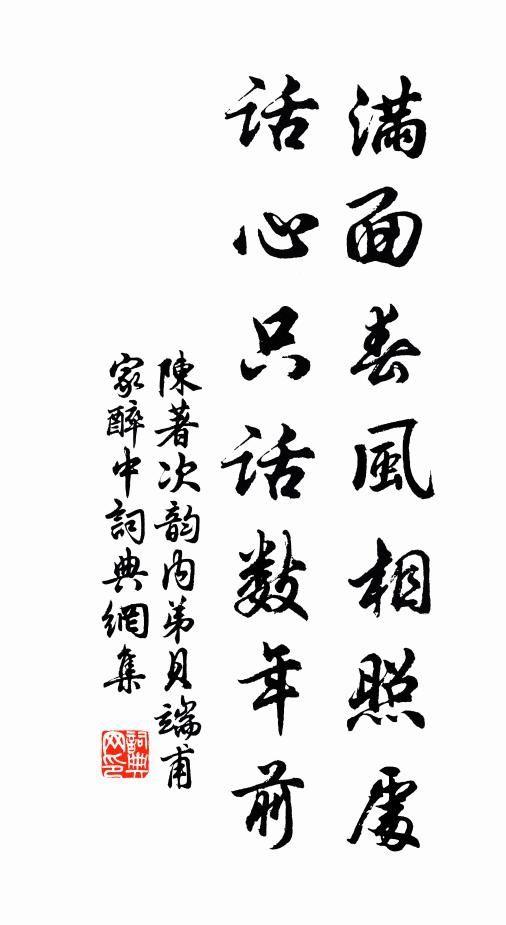 滿面春風相照處
話心只話數年前
陳著次韵內弟貝端甫
家醉中詞典網集
詞典
网印